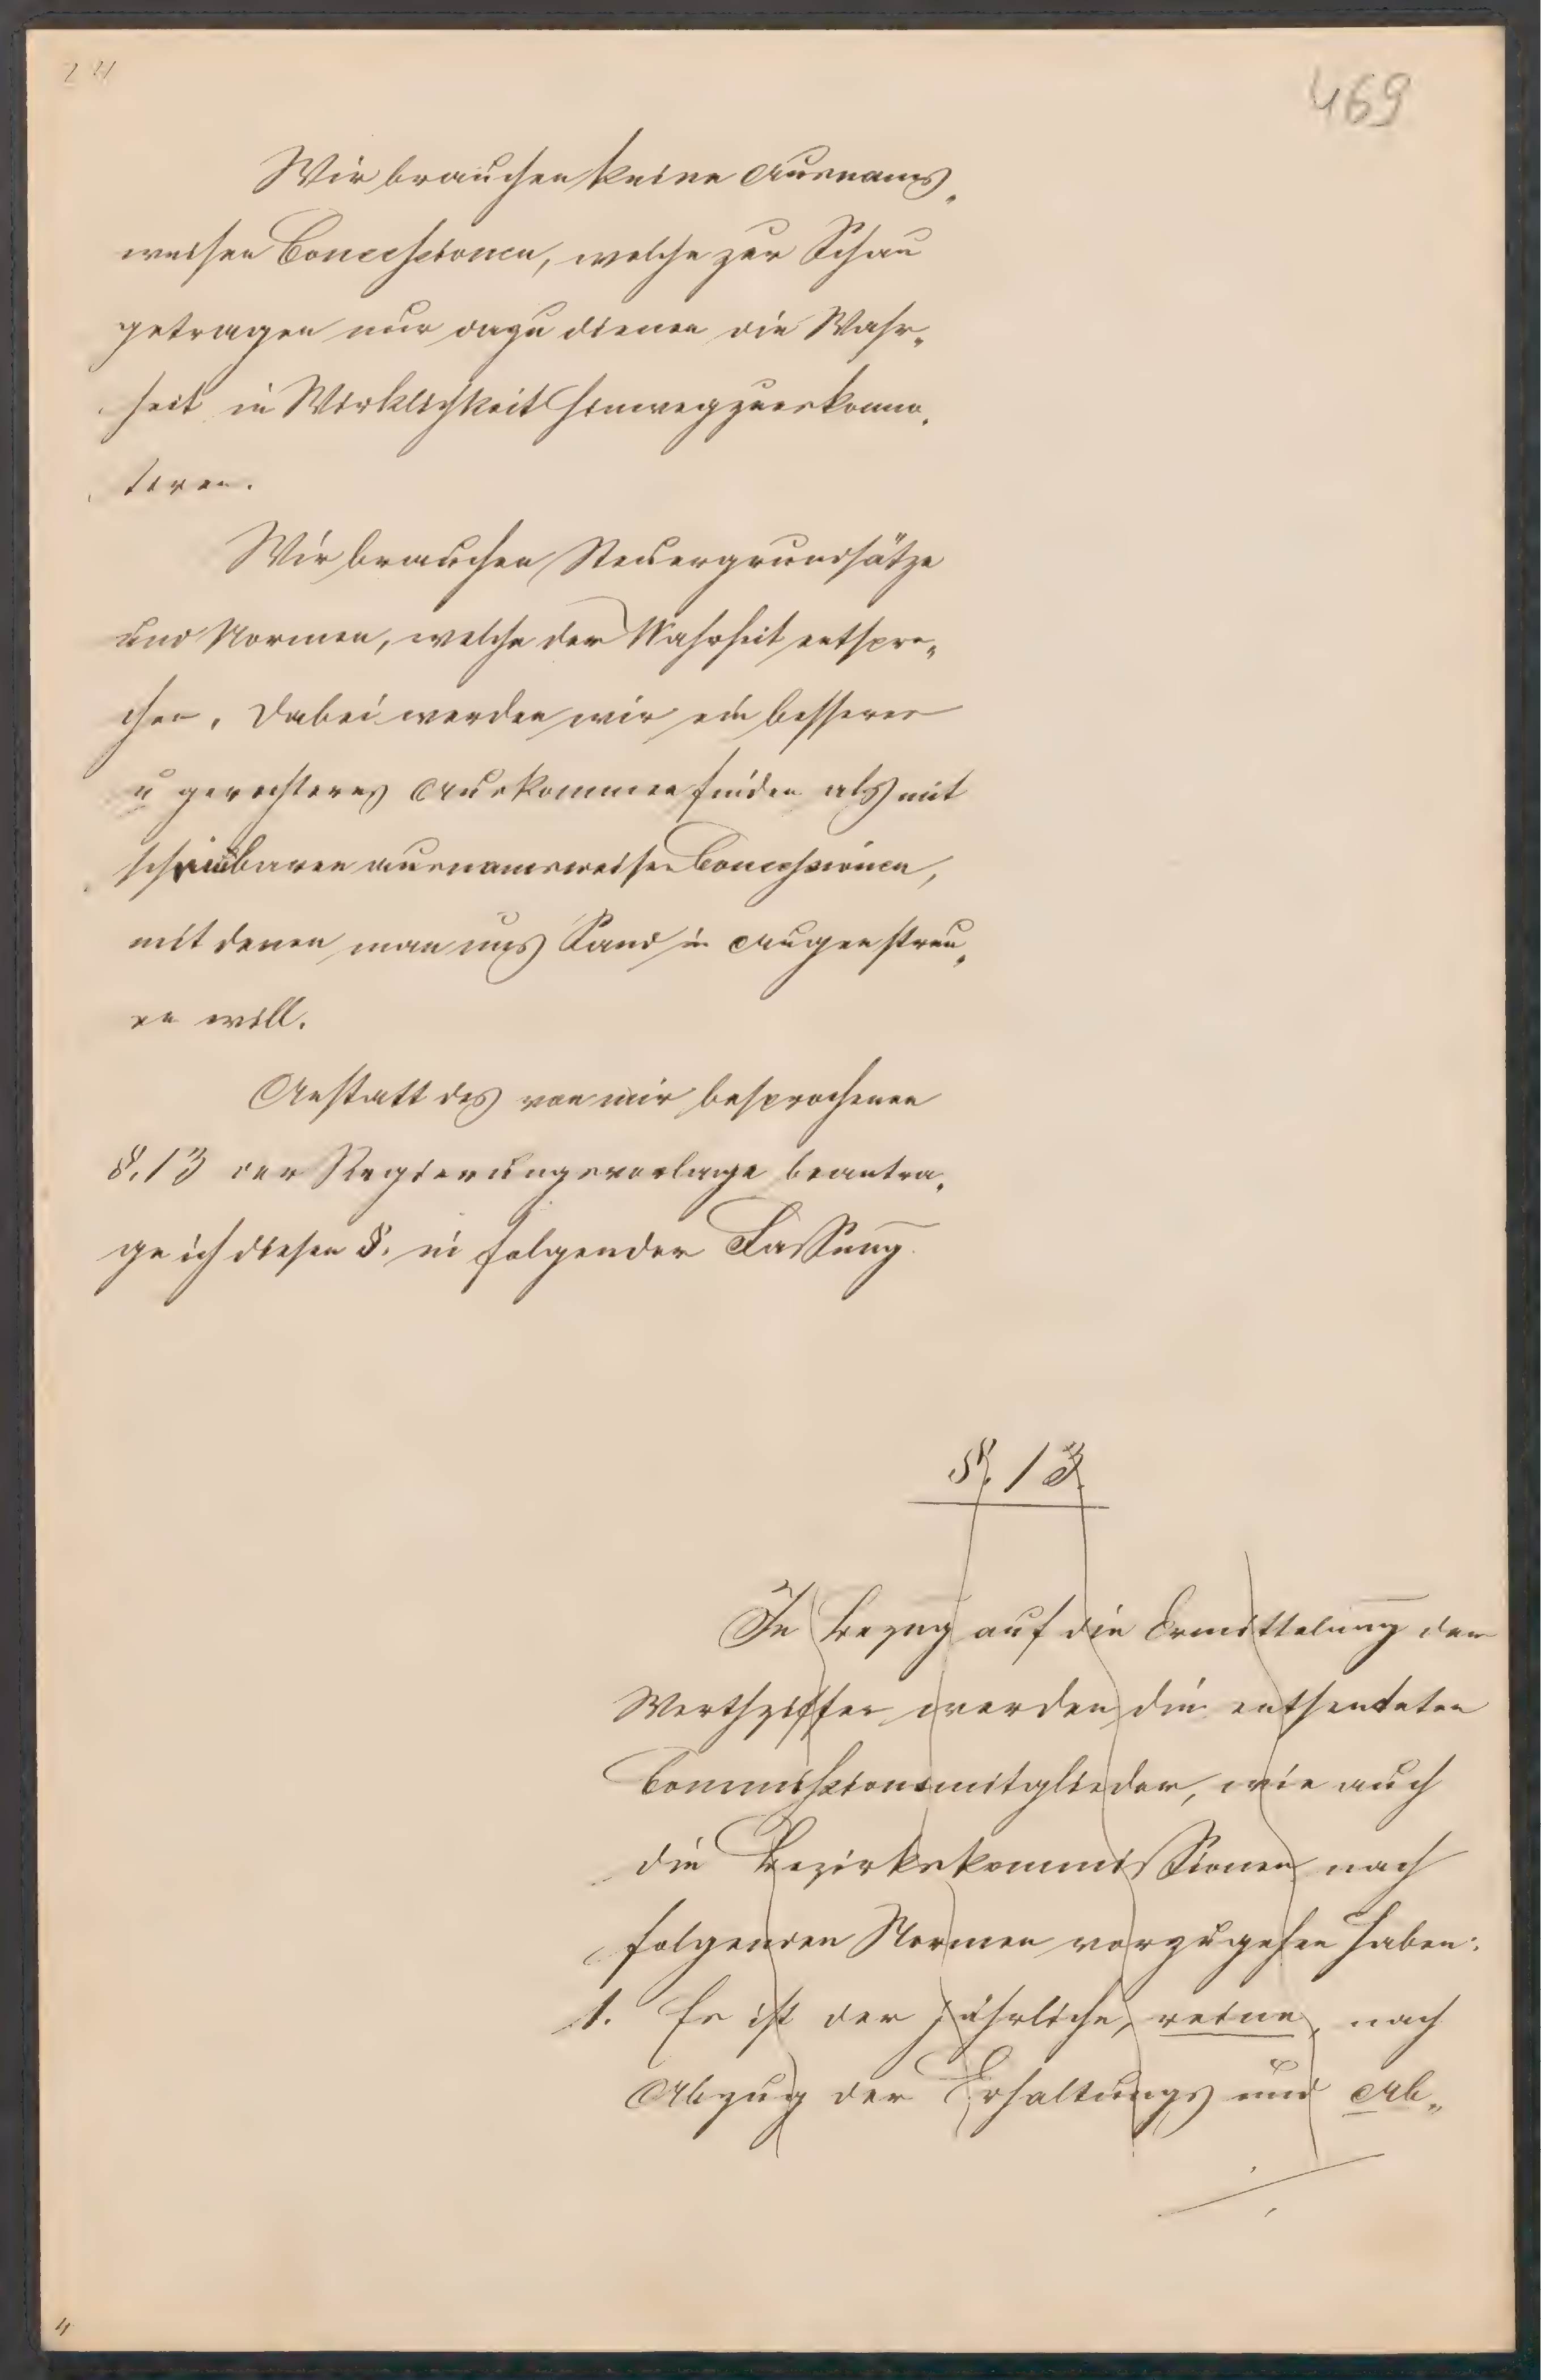 24
469
Wir brauchen keine Ausnams„
weisen Concessionen, welche zur Schau
getragen nur dazu dienen die Wahr„
heit in Wirklichkeit hinwegzueskamo„
tiren.
Wir brauchen Steuergrundsätze
und Normen, welche der Wahrheit entspre„
chen. Dabei werden wir ein besseres
u gerechteres Auskommen finden als mit
scheinbaren ausnamsweisen Concessionen,
mit denen man uns Sand in Augen streu„
en will.
Anstatt des von mir besprochenen
§. 13 der Regierungsvorlage beantra„
ge ich diesen §. in folgender Fassung
§. 13.
In Bezug auf die Ermittelung der
Werthziffer werden die entsendeten
Commissionsmitglieder, wie auch
die Bezirkskommissionen nach
folgenden Normen vorzugehen haben:
1. Es ist der jährliche, reine, nach
Abzug der Erhaltungs und Ab„
4